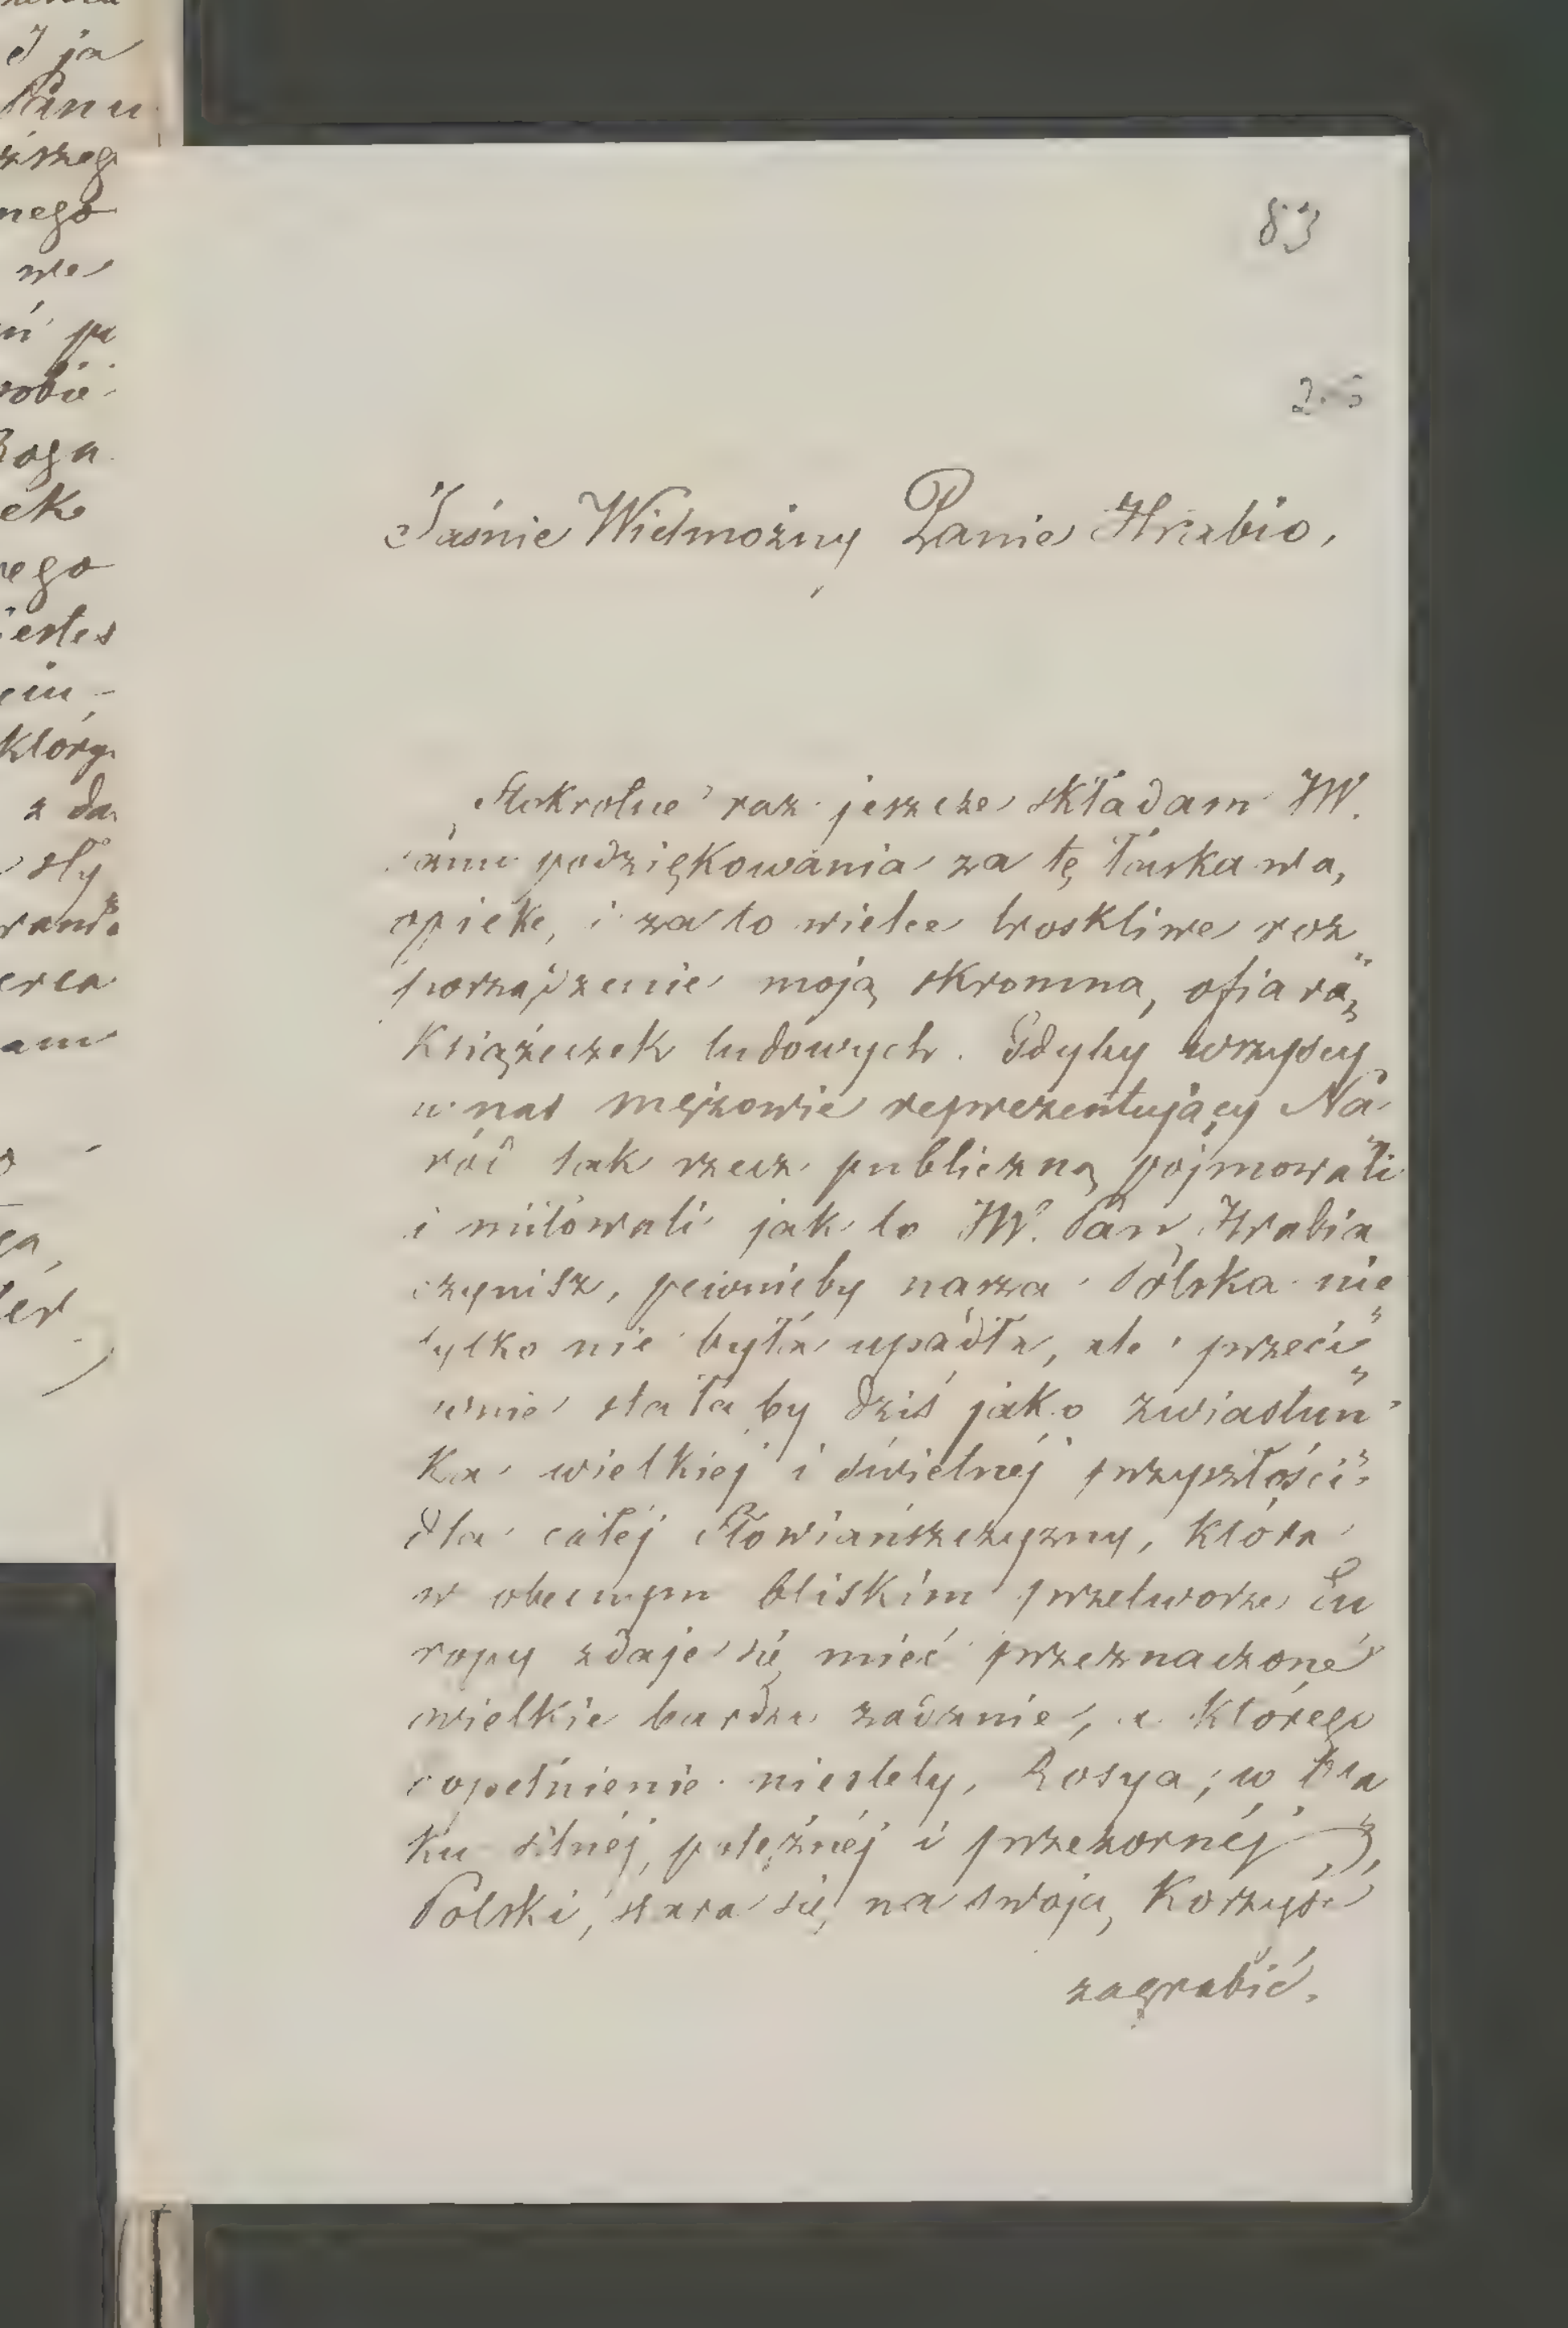 83
Jaśnie Wielmożny Panie Hrabio,
Stokrotne raz jeszcze składam JW.
Panu podziękowania za tę łaskawą
opiekę, i za to wielce troskliwe roz„
porządzenie moją skromną ofiarą
książeczek ludowych. Gdyby wszyscy
u nas mężowie reprezentujący Na„
ród tak rzecz publiczną pojmowali
i miłowali jak to JW. Pan Hrabia
czynisz, pewnieby nasza Polska nie
tylko nie była upadła, ale przeci„
wnie stałaby dziś jako zwiastun„
ka wielkiej i świetnej przyszłości
dla całej Słowiańszczyzny, która
w obecnym bliskim przetworze Eu
ropy zdaje się mieć przeznaczone
wielkie bardzo zadanie, a którego
dopełnienie niestety, Rosya, w bra
ku silnéj, potężnéj i przezornéj
Polski, stara się na swoją korzyść
zagrabić.
I ja
Panu
nego
we
ek
z da